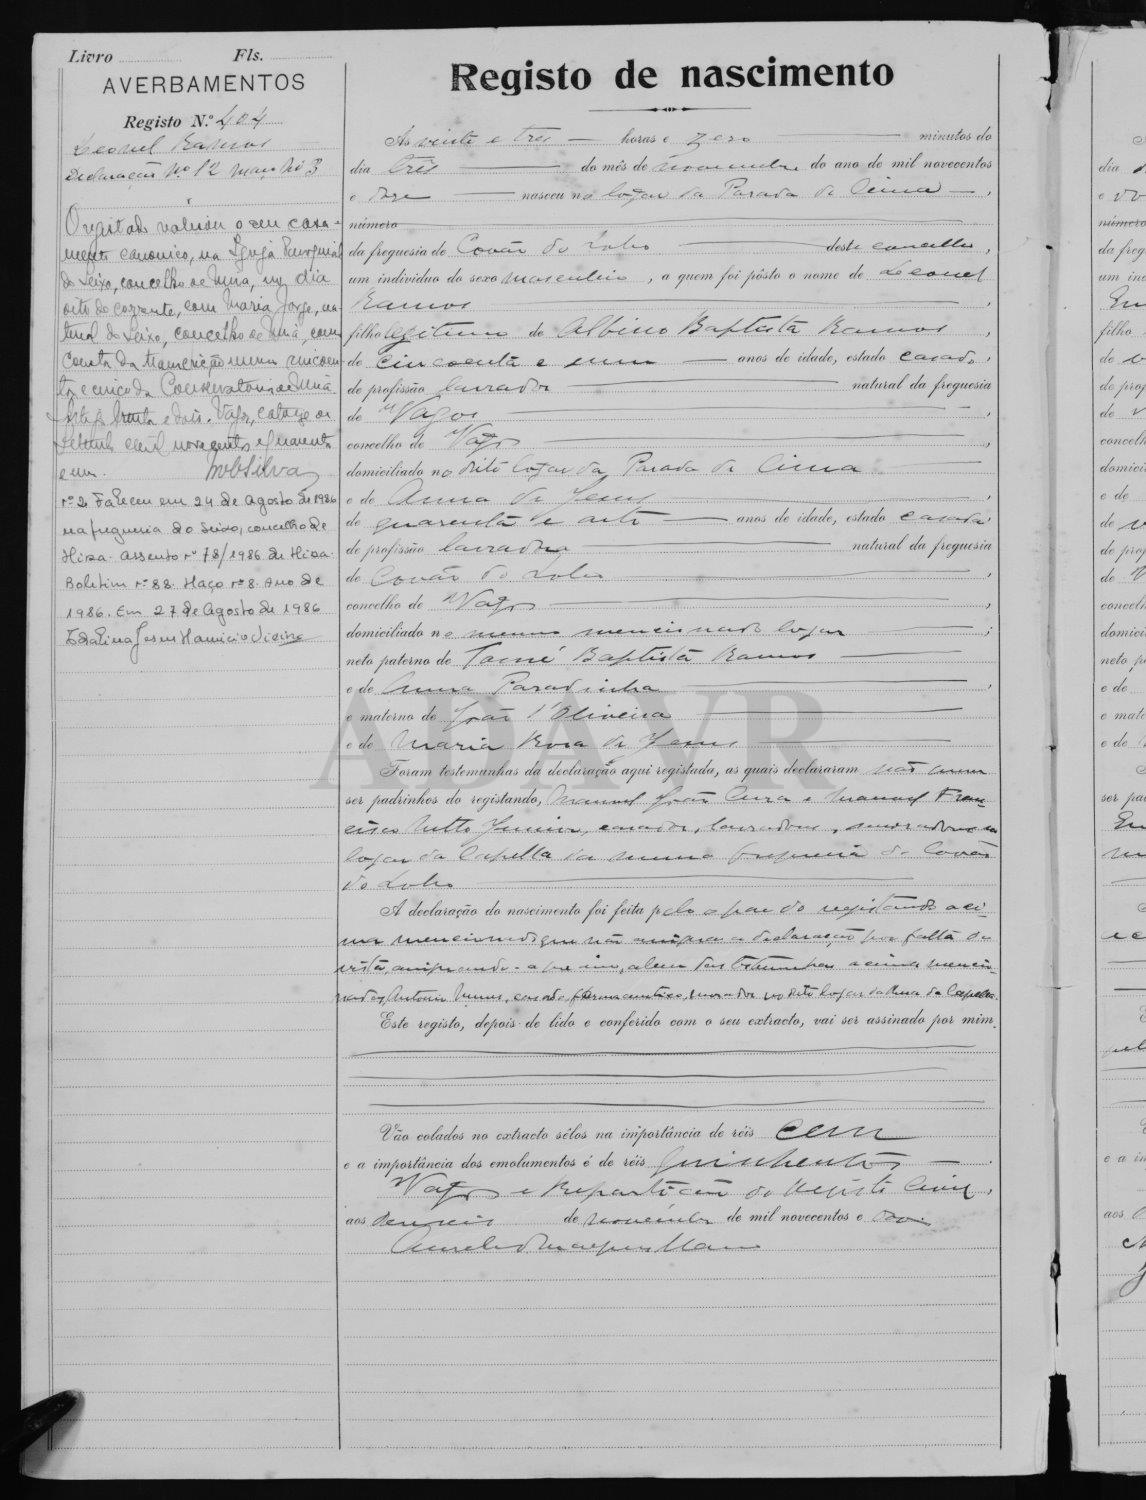 Livro Fls.
AVERBAMENTOS
Registo N.º 404
Leonel Ramos
Declaração Nº 12 Maço Nº 3
O registado realisou o seu casa-
mento canonico, na Igreja Paroquial
do Seixo, concelho de Mira, no dia
oito do corrente, com Maria Jorge, na-
tural do Seixo, concelho de Mira, como
consta da transcrição numero cincoen-
ta e cinco da Conservatoria de Mira
trinta e dois. Vagos, catorze de
Setembro de mil novecentos e quarenta
e um. Silva
nº 2 Faleceu em 24 de Agosto de 1986
na freguesia do Seixo, concelho de
Mira. Assento nº 78/1986 de Mira.
Boletim nº 88. Maço nº 8. Ano de
1986. Em 27 de Agosto de 1986
Jesus Mauricio Vieira
Registo de nascimento
Ás vinte e tres horas e zero minutos do
dia três do mês de novembro do ano de mil novecentos
e doze nasceu no logar da Parada de Cima,
número
da freguesia de Covão do Lobo deste concelho,
um individuo do sexo masculino, a quem foi pôsto o nome de Leonel
Ramos,
filho legitimo de Albino Baptista Ramos,
de cincoenta e um anos de idade, estado casado,
de profissão lavrador natural da freguesia
de Vagos,
concelho de Vagos,
domiciliado no dito logar da Parada de Cima
e de Anna de Jesus,
de quarenta e oito anos de idade, estado casada,
de profissão lavradora natural da freguesia
de Covão do Lobo,
concelho de Vagos,
domiciliado no mesmo mencionado logar;
neto paterno de Tomé Baptista Ramos
e de Anna Paradinha,
e materno de João d'Oliveira
e de Maria Rosa de Jesus
Foram testemunhas da declaração aqui registada, as quais declararam não
ser padrinhos do registando, Manuel João e Manuel Fran-
cisco Netto Junior, casados, lavradores, moradores no
logar da Capella da mesma freguesia de Covão
do Lobo
A declaração do nascimento foi feita pelo pae do registando aci-
ma mencionado que não assigna a declaração por falta de
vista, assignando-a por elle, alem das testemunhas acima mencio-
nadas, Antonio Nunes, casado, farmaceutico, morador no dito logar da Capella.
Este registo, depois de lido e conferido com o seu extracto, vai ser assinado por mim.
Vão colados no extracto sêlos na importância de réis cem
e a importância dos emolumentos é de réis quinhentos.
Vagos e Repartição do Registo Civil,
aos dezeseis de novembro de mil novecentos e doze
ADAVR